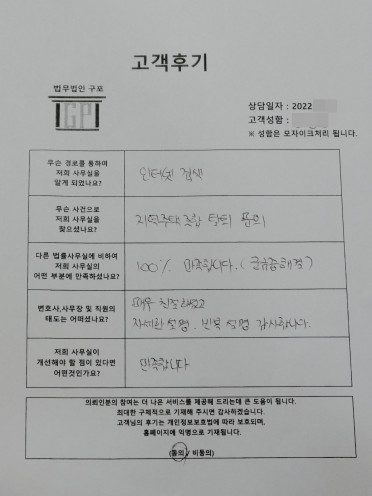 고객후기
법무법인 구포
GP
상담일자 : 2022
고객성함 :
※ 성함은 모자이크처리 됩니다.
무슨 경로를 통하여
저희 사무실을
알게 되었나요?
인터넷 검색
무슨 사건으로
저희 사무실을
찾으셨나요?
지역주택조합 탈퇴 문의
다른 법률사무실에 비하여
저희 사무실의
어떤 부분에 만족하셨나요?
100% 만족합니다. (궁금증해결)
변호사,사무장 및 직원의
태도는 어떠셨나요?
매우 친절하셨고
자세한 설명. 반복 설명 감사합니다.
저희 사무실이
개선해야 할 점이 있다면
어떤것인가요?
만족합니다
의뢰인분의 참여는 더 나은 서비스를 제공해 드리는데 큰 도움이 됩니다.
최대한 구체적으로 기재해 주시면 감사하겠습니다.
고객님의 후기는 개인정보보호법에 따라 보호되며,
홈페이지에 익명으로 기재됩니다.
(동의 / 비동의)